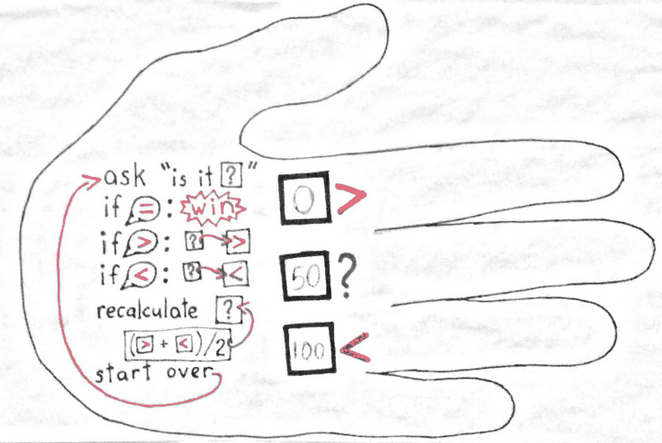 ask "is it ? "
if = : win
if > : ? → >
if < : ? → <
recalculate ?
(> + <)/2
start over
0 >
50 ?
100 <